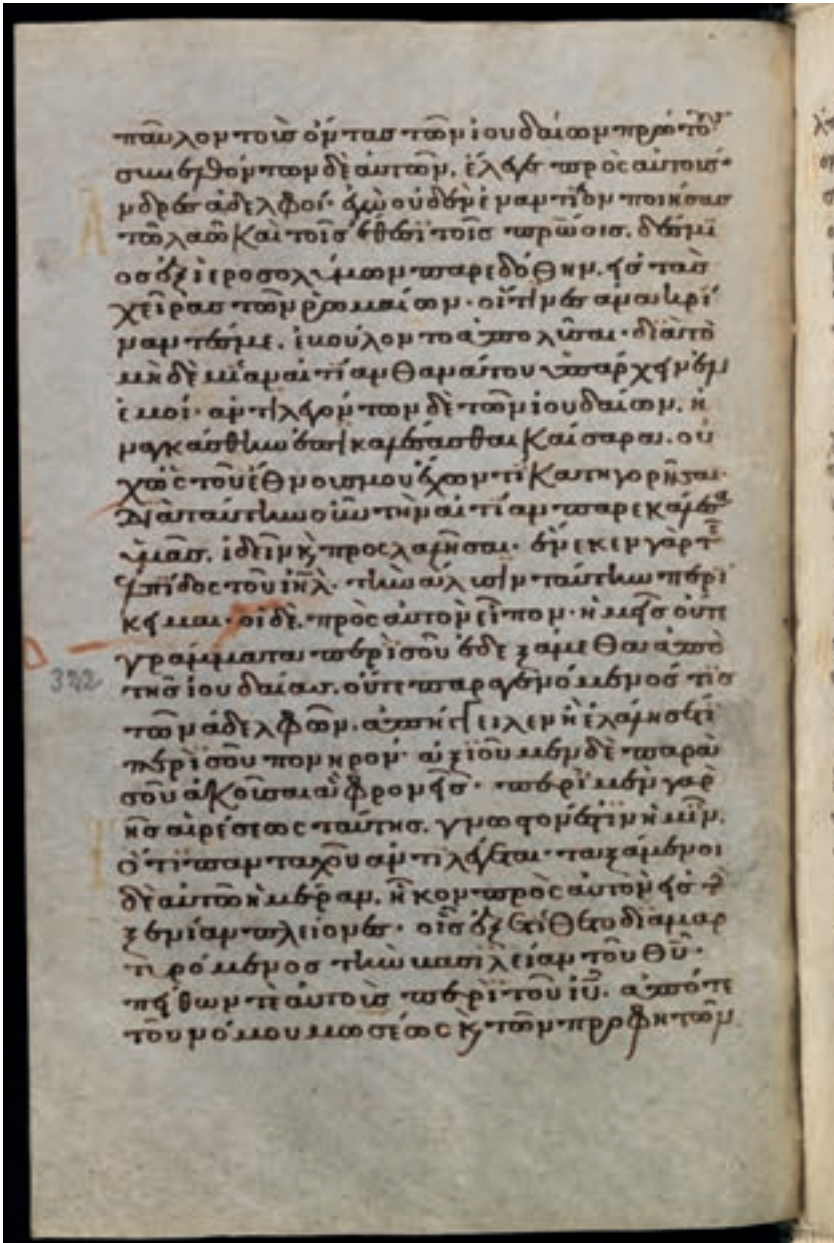 παῦλον τοὺς ὄντας τῶν ἰουδαίων πρώτους·
συνελθόντων δὲ αὐτῶν, ἔλεγε πρὸς αὐτούς·
Ἄνδρες ἀδελφοί· ἐγὼ οὐδὲν ἐναντίον ποιήσας
τῶ λαῶ καὶ τοῖς ἔθεσϊ τοῖς πατρώοις, δέσμϊ
ος ἐξ ἱεροσολύμων παρεδόθην, εἰς τὰς
χεῖρας τῶν ῥωμαίων· οἵτϊνες ἀνακρί
ναντές με, ἐβούλοντο ἀπολῦσαι· διὰ τὸ
μηδὲ μίαν αἰτίαν θανάτου ὑπάρχειν ἐν
ἐμοί· ἀντιλεγόντων δὲ τῶν ἰουδαίων, ἠ
ναγκάσθην ἐπικαλέσασθαι καίσαρα· οὐ
χ ὡς τοῦ ἔθνους μου ἔχων τϊ κατηγορῆσαι·
διὰ ταύτην οὖν τὴν αἰτίαν παρεκάλεσα
ὑμᾶς, ἰδεῖν κ προσλαλῆσαι· ἕνεκεν γὰρ τῆς
ἐλπίδος τοῦ ἰηλ, τὴν ἅλυσιν ταύτην περί
κειμαι· οἱ δὲ, πρὸς αὐτὸν εἶπον· ἡμεῖς οὔτε
γράμματα περὶ σοῦ ἐδεξάμεθα ἀπὸ
τῆς ἰουδαίας, οὔτε παραγενόμενός τις
τῶν ἀδελφῶν, ἀπήγγειλεν ἢ ἐλάλησέ τϊ
περὶ σοῦ πονηρόν· ἀξιοῦμεν δὲ παρὰ
σοῦ ἀκοῦσαι ἃ φρονεῖς· περὶ μὲν γὰρ
τῆς αἱρέσεως ταύτης, γνωστόν ἐστϊν ἡμῖν,
ὅτϊ πανταχοῦ ἀντιλέγεται· ταξάμενοι
δὲ αὐτῶ ἡμέραν, ἧκον πρὸς αὐτὸν εἰς τὴν
ξενίαν πλείονες· οἷς ἐξετίθετο διαμαρ
τυρόμενος τὴν βασιλείαν τοῦ θυ·
πείθων τε αὐτοὺς περὶ τοῦ ιυ, ἀπό τε
τοῦ νόμου μωσέως κ τῶν προφητῶν
322